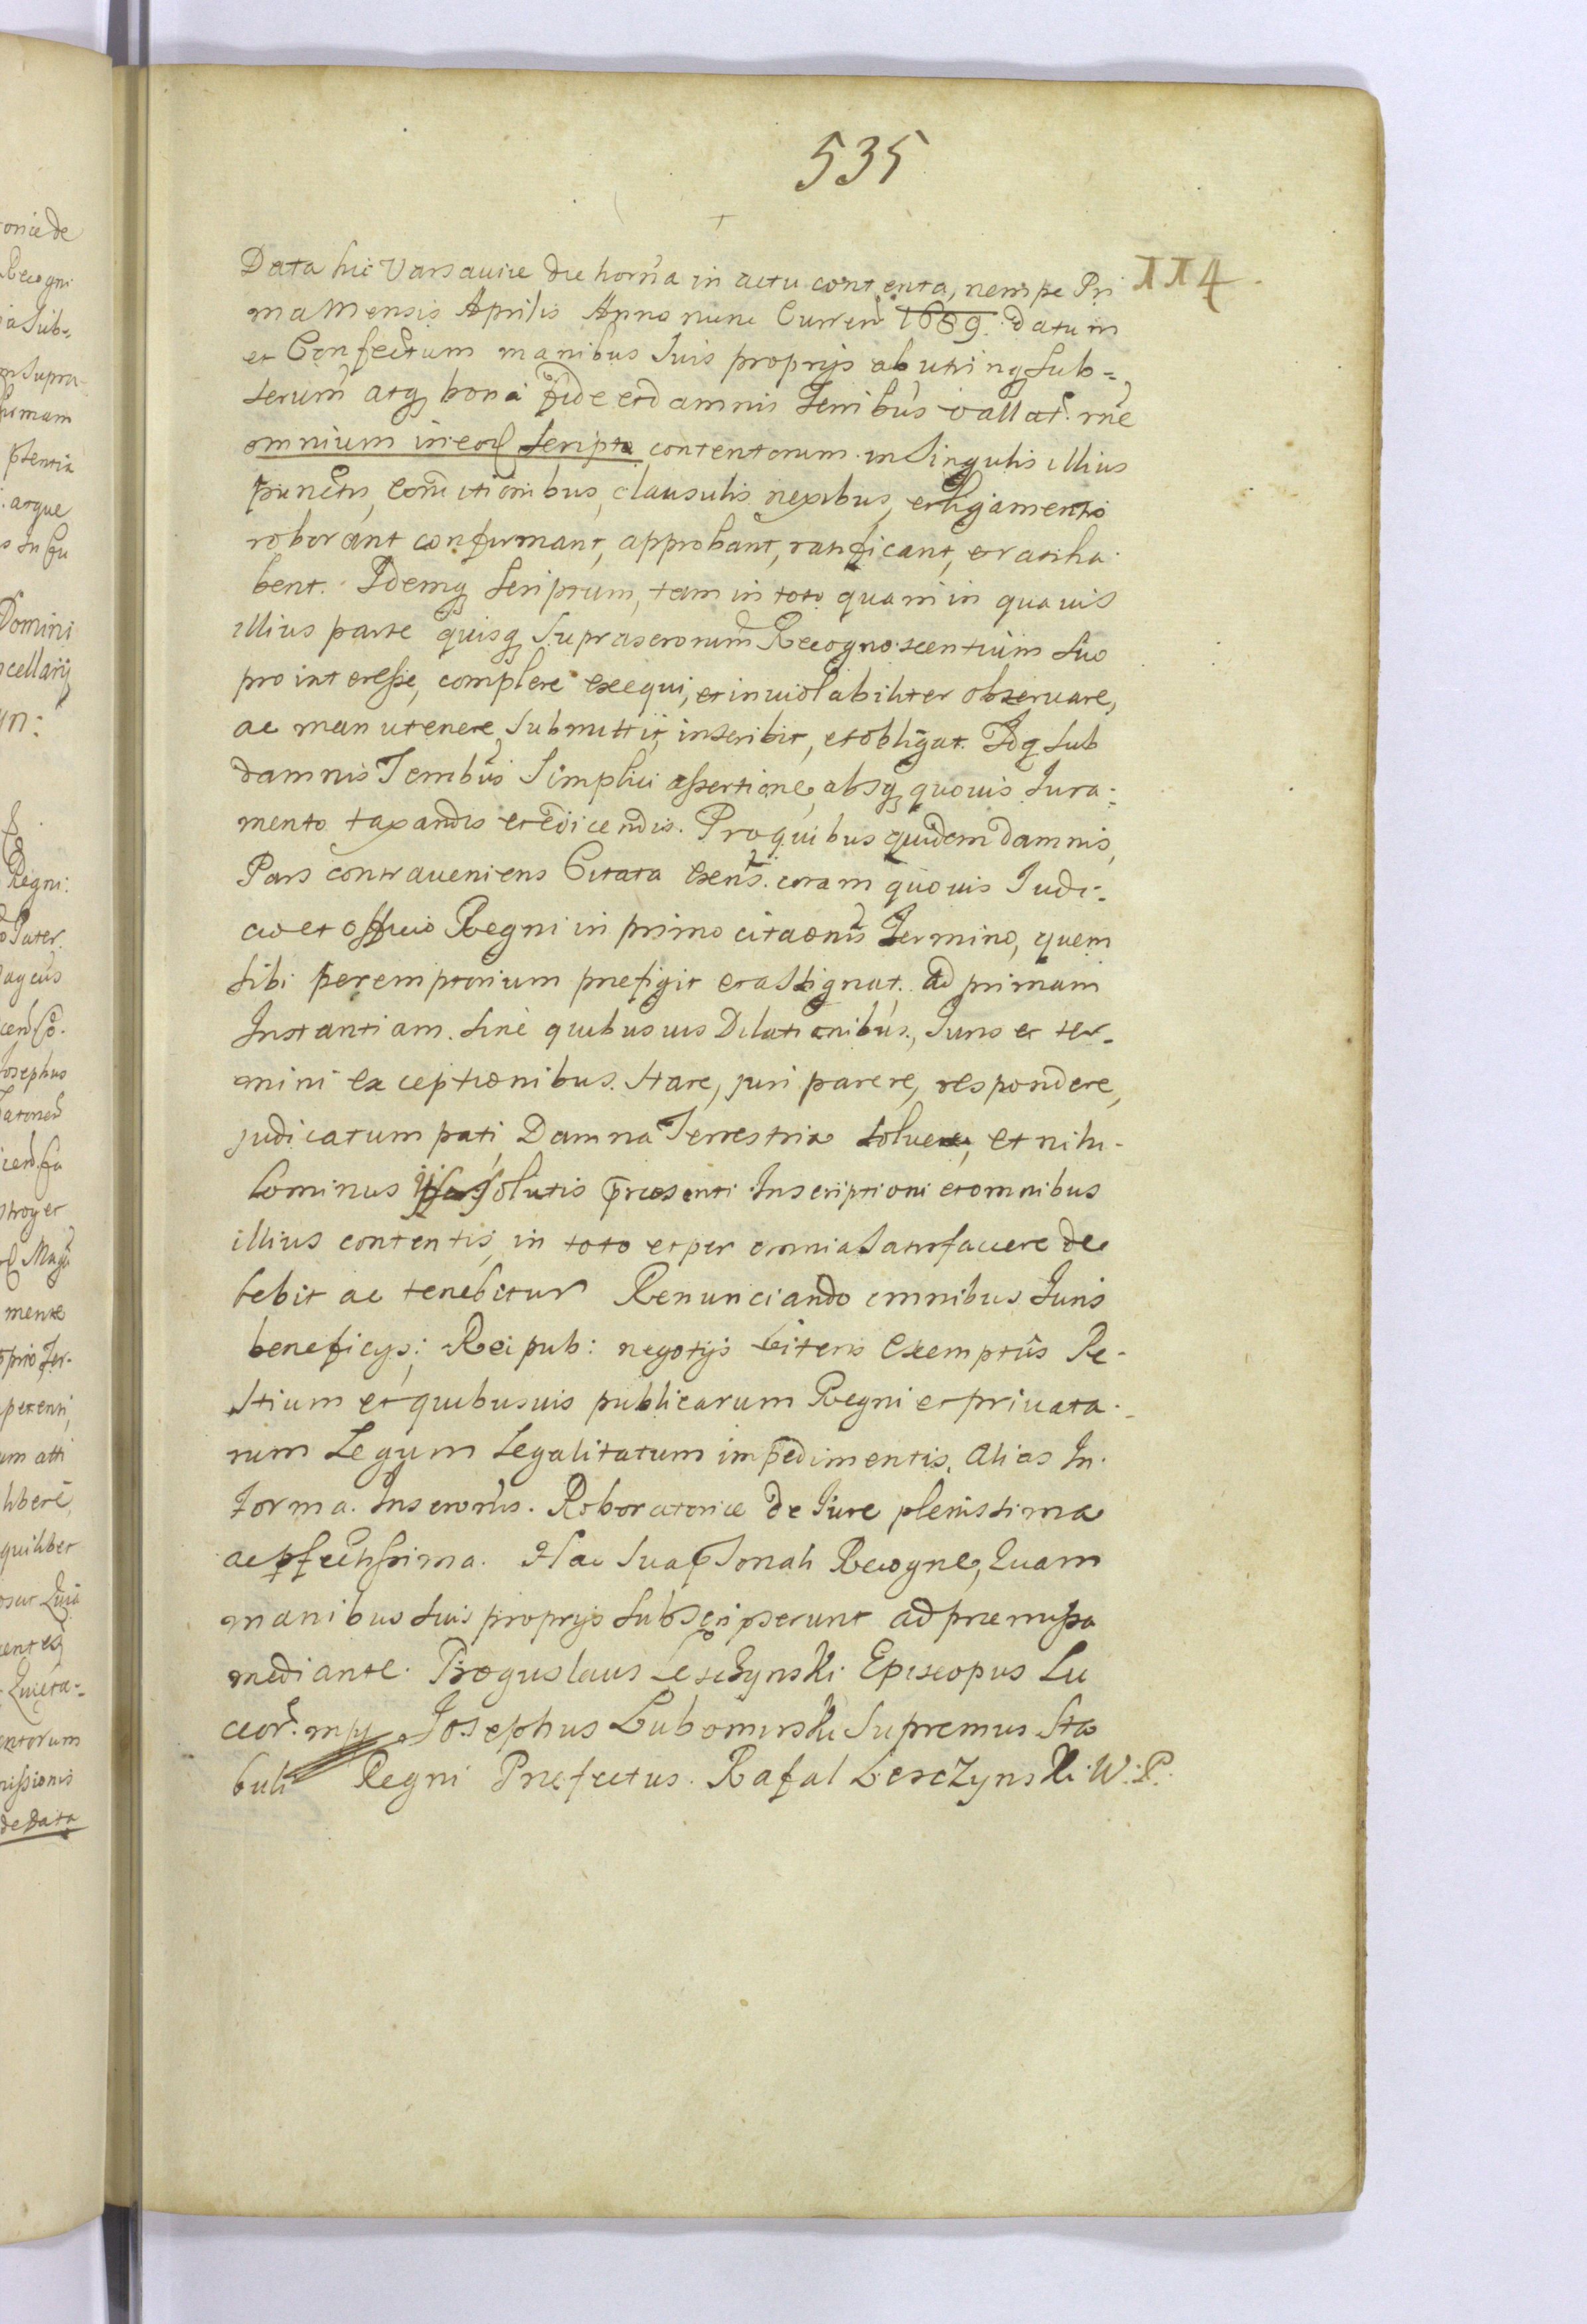 535
114
Data hic Varsaviæ die horna in actu contenta, nempe Pri
ma Mensis Aprilis Anno nunc Curren 1689. datum
et Confectum manibus suis proprijs ab utrinq sub=
scrum atq bona fide et damnis Terribus vallat. rne
omnium in eod scripto contentorum in singulis illius
punctis, conditionibus, clausulis nexibus, et ligamentis
roborant confirmant, approbant, ratificant, et ratiha
bent. Idemq scriptum, tam in toto quam in quavis
illius parte quisq supraserorum Recognoscentium suo
pro interesse, complere exequi, et inviolabiliter observare,
ac manutenere submittit, inscribit, et obligat. Idq sub
damnis Terribus simplici assertione, absq quovis Jura=
mento taxandis et edicendis. Pro quibus quidem damnis,
Pars contraveniens Citata exens. coram quovis Judi=
cio et officio Regni in primo citaonis Termino, quem
sibi peremptorium præfigit et assignat. ad primam
Instantiam. sine quibusvis Dilationibus, Juris et ter-
mini exceptionibus. stare, juri parere, respondere,
judicatum pati, Damna Terrestria solvere, et nihi-
lominus solutis præsenti Inscriptioni et omnibus
illius contentis, in toto et per omnia satisfacere de
bebit ac tenebitur Renunciando omnibus Juris
beneficijs; Reipub: negotijs Literis Exemptiis Pe-
stium et quibusvis publicarum Regni et privata-
rum Legum Legalitatum impedimentis. Alias In
forma. Inscronis. Roboratoriæ de Jure plenissima
ac pfectissima. Hac sua Psonali Recogne, Quam
manibus suis proprijs subscripserunt ad præmissa
mediante. Boguslaus Leszczynski Episcopus Lu
ceor. mpp Josephus Lubomirski Supremus Sta
buli Regni Præfectus. Rafal Lesczynski W. P.